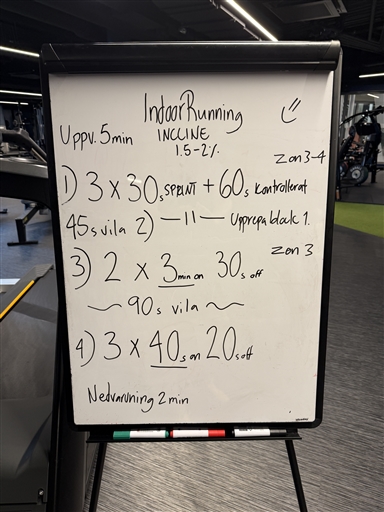 Indoor Running
Uppv. 5 min
INCLINE
1.5-2%
zon 3-4
1) 3 x 30s SPRINT + 60s kontrollerat
45s vila 2) —11— Upprepa block 1.
3) 2 x 3min on 30s off
zon 3
~ 90s vila ~
4) 3 x 40s on 20s off
Nedvarvning 2 min